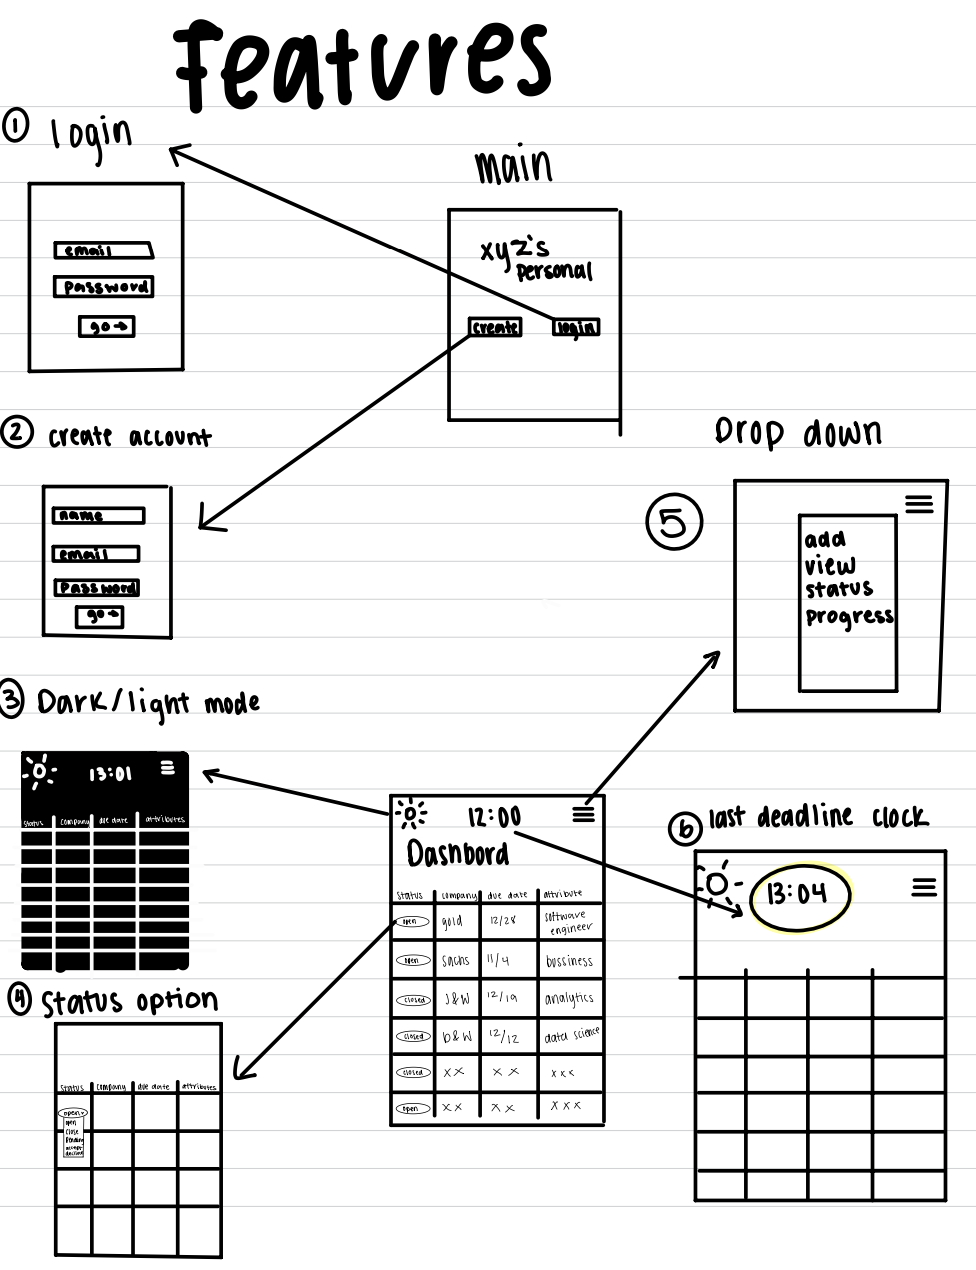 Features
① login
email
password
go →
main
xyz's
personal
create
login
② create account
name
email
password
go →
Drop down
⑤
add
view
status
progress
③ Dark/light mode
13:01
status company due date attributes
12:00
Dashbord
status company due date attribute
open gold 12/28 software engineer
open sachs 11/4 bussiness
closed J&W 12/19 analytics
closed b&W 12/12 data science
closed xx xx xxx
open xx xx xxx
⑥ last deadline clock
13:04
④ Status option
status company due date attributes
open
open
close
pending
accept
decline